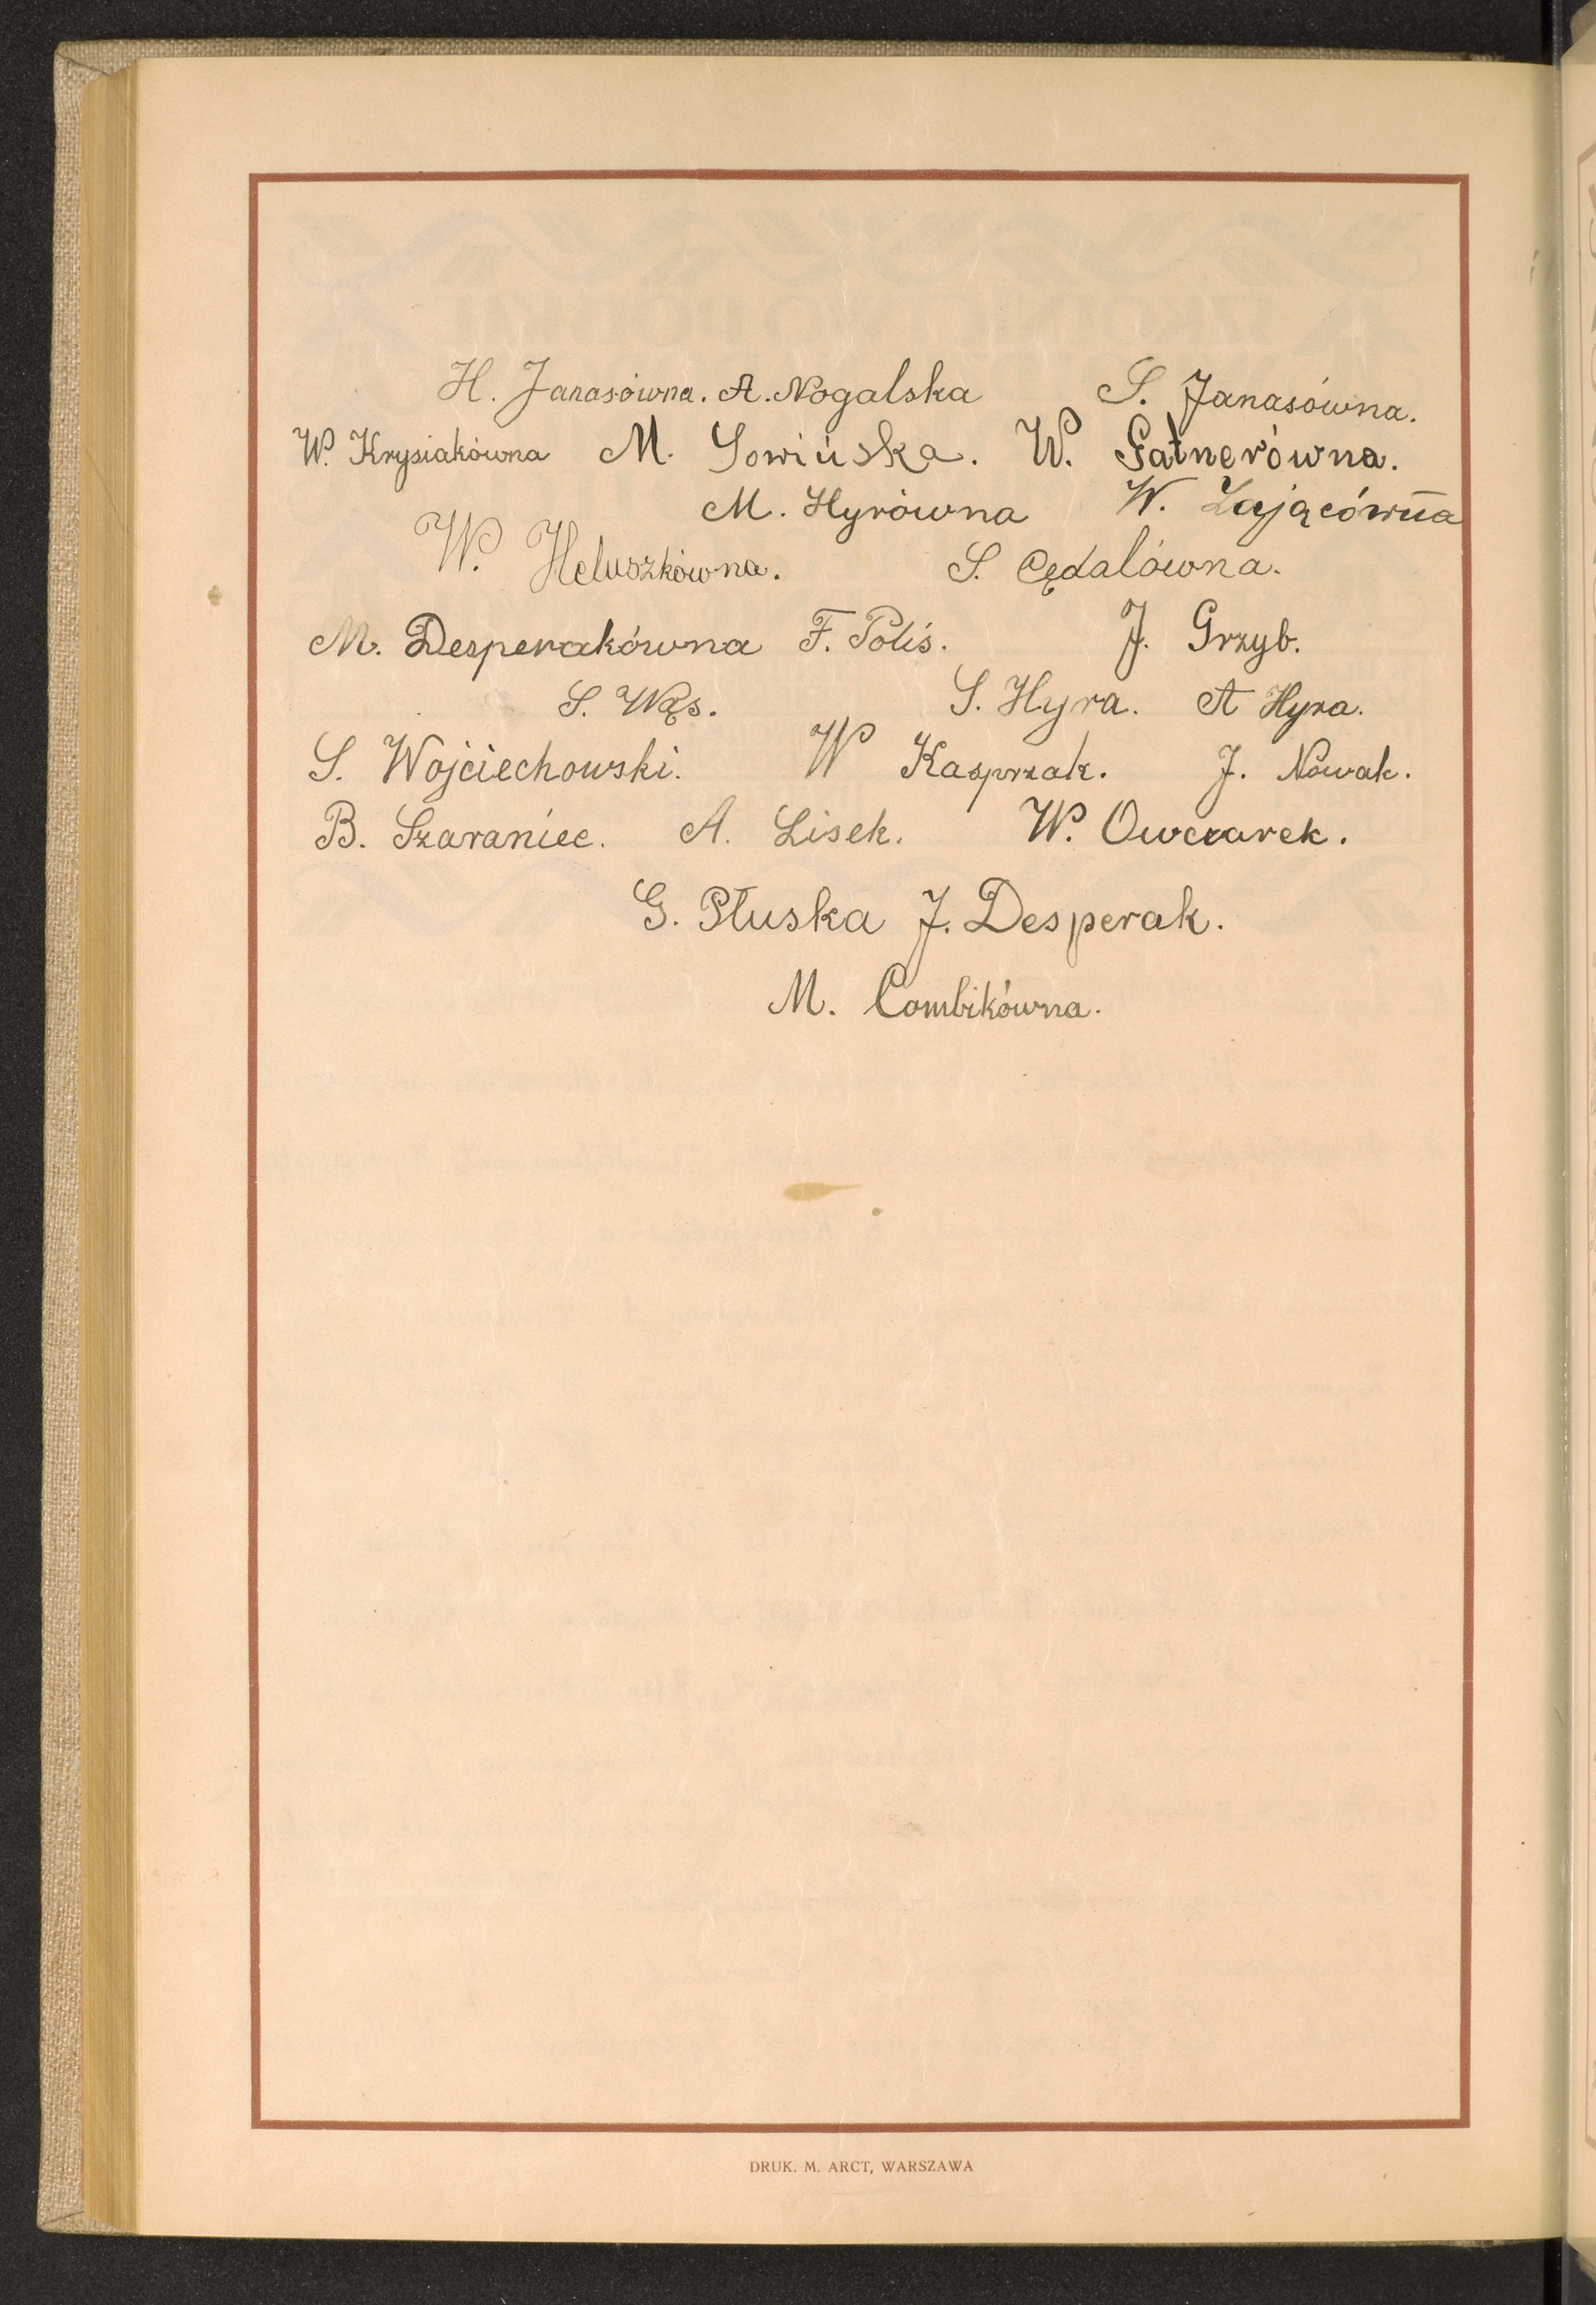 H. Janasówna. A. Nogalska S. Janasówna.
W. Krysiakówna M. Sowińska. W. Gatnerówna.
M. Hyrówna W. Zającówna
W. Heluszkówna. S. Cędalówna.
M. Desperakówna F. Polis. J. Grzyb.
S. Wąs. S. Hyra. A Hyra.
S. Wojciechowski. W Kasprzak. J. Nowak.
B. Szaraniec. A. Lisek. W. Owczarek.
G. Płuska J. Desperak.
M. Combikówna.
DRUK. M. ARCT, WARSZAWA